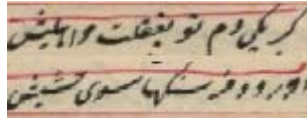 گر یکی دم تو بغفلت وا هلیش
او رود فرسنگها سوی حشیش